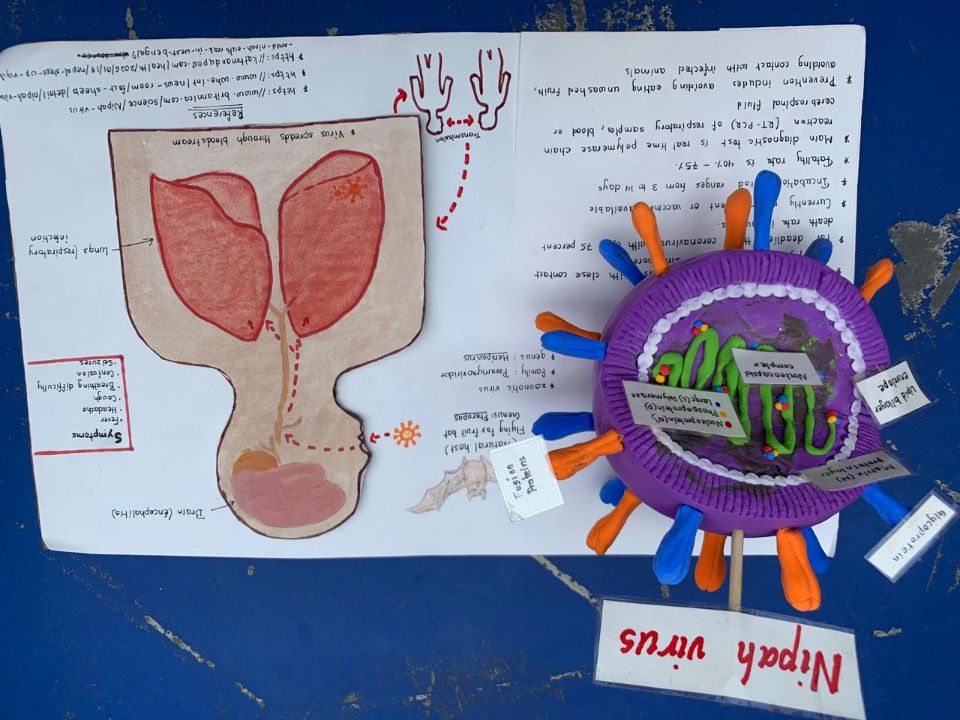 Nipah virus
Glycoprotein
Fusion
Proteins
Matrix (M)
protein layer
Lipid bilayer
envelope
Nucleoprotein(N)
Phosphoprotein(P)
Large(L) Polymerase
Nucleocapsid
complex
(Natural host)
Flying fox fruit bat
Genus: Pteropus
* zoonotic virus
* family: Paramyxoviridae
* genus: Henipavirus
with close contact
deadlier coronavirus with 75 percent
death rate in
* Currently or vaccine available
* ranges from 3 to 14 days
* Fatality rate is 40% - 75%.
* Main diagnostic test is real time polymerase chain
reaction (RT-PCR) of respiratory samples, blood or
cerebrospinal fluid
* Prevention includes avoiding eating unwashed fruit,
avoiding contact with infected animals
Transmission
Brain (encephalitis)
Symptoms
• Fever
• Headache
• Cough
• Breathing difficulty
• Confusion
• Seizures
Lungs (respiratory
infection
* Virus spreads through bloodstream
References
* https://www.britannica.com/science/Nipah-virus
* https://www.who.int/news-room/fact-sheets/detail/nipah-virus
* https://kathmandupost.com/health/2026/01/19/nepal-steps-up-vigil-
amid-nipah-outbreak-in-west-bengal?